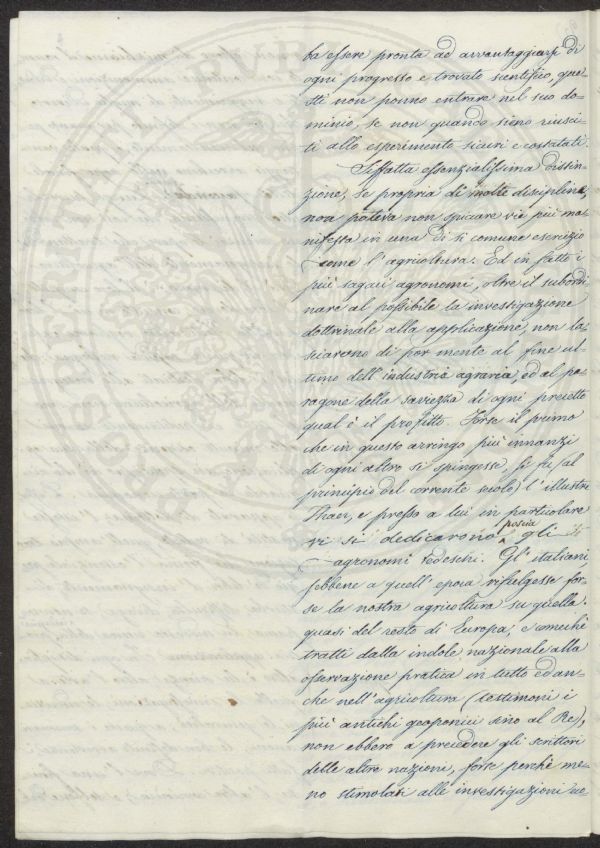 ba essere pronta ad avvantaggiarsi di
ogni progresso e trovato scientifico, que-
sti non ponno entrare nel suo do-
minio, se non quando sieno riusci-
ti allo esperimento sicuri e costatati.
Siffatta essenzialissima distin-
zione, se propria di molte discipline,
non poteva non spiccare vie più ma-
nifesta in una di sì comune esercizio
come l'agricoltura. Ed in fatto i
più sagaci agronomi, oltre il subordi-
nare al possibile la investigazione
dottrinale alla applicazione, non la-
sciarono di por mente al fine ul-
timo dell'industria agraria, ed al pa-
ragone della saviezza di ogni precetto
qual è il profitto. Forse il primo
che in questo arringo più innanzi
di ogni altro si spingesse, si fu (al
principio del corrente secolo) l'illustre
Thaer, e presso a lui in particolare
vi si dedicarono poscia gli
agronomi tedeschi. Gl'italiani,
sebbene a quell'epoca rifulgesse for-
se la nostra agricoltura su quella
quasi del resto di Europa, e comechè
tratti dalla indole nazionale alla
osservazione pratica in tutto ed an-
che nell'agricoltura (testimoni i
più antichi geoponici sino al Re),
non ebbero a precedere gli scrittori
delle altre nazioni, forse perchè me-
no stimolati alle investigazioni ne
PROSPERITATI PVB